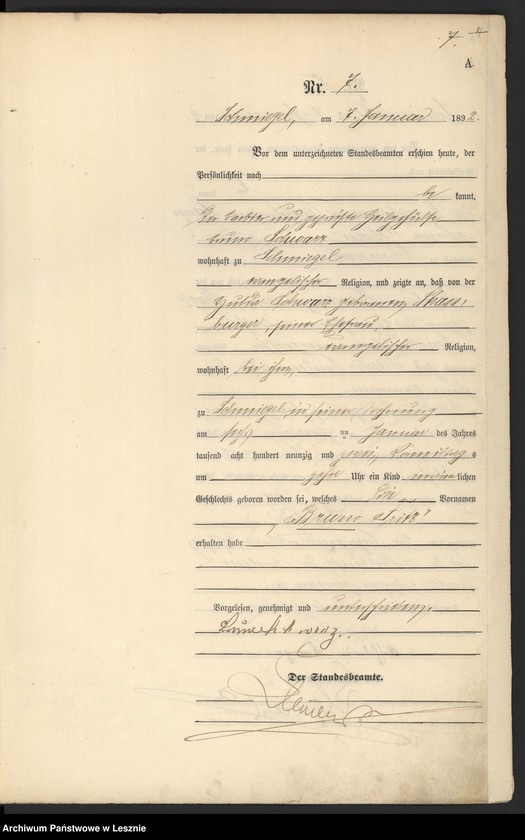 7.
A.
Nr. 7.
Schmiegel, am 7. Januar 1892.
Vor dem unterzeichneten Standesbeamten erschien heute, der
Persönlichkeit nach
be kannt,
Der Barbier und geprüfte Heilgehülfe
Bruno Schwarz
wohnhaft zu Schmiegel
evangelischer Religion, und zeigte an, daß von der
Hulda Schwarz geborenen
burger, seiner Ehefrau,
evangelischer Religion,
wohnhaft bei ihm,
zu Schmiegel, in seiner Wohnung
am ten Januar des Jahres
tausend acht hundert neunzig und zwei, Vormittags
um zehn Uhr ein Kind männlichen
Geschlechts geboren worden sei, welches die Vornamen
„Bruno Fritz"
erhalten habe
Vorgelesen, genehmigt und unterschrieben.
Bruno Schwarz.
Der Standesbeamte.
Archiwum Państwowe w Lesznie